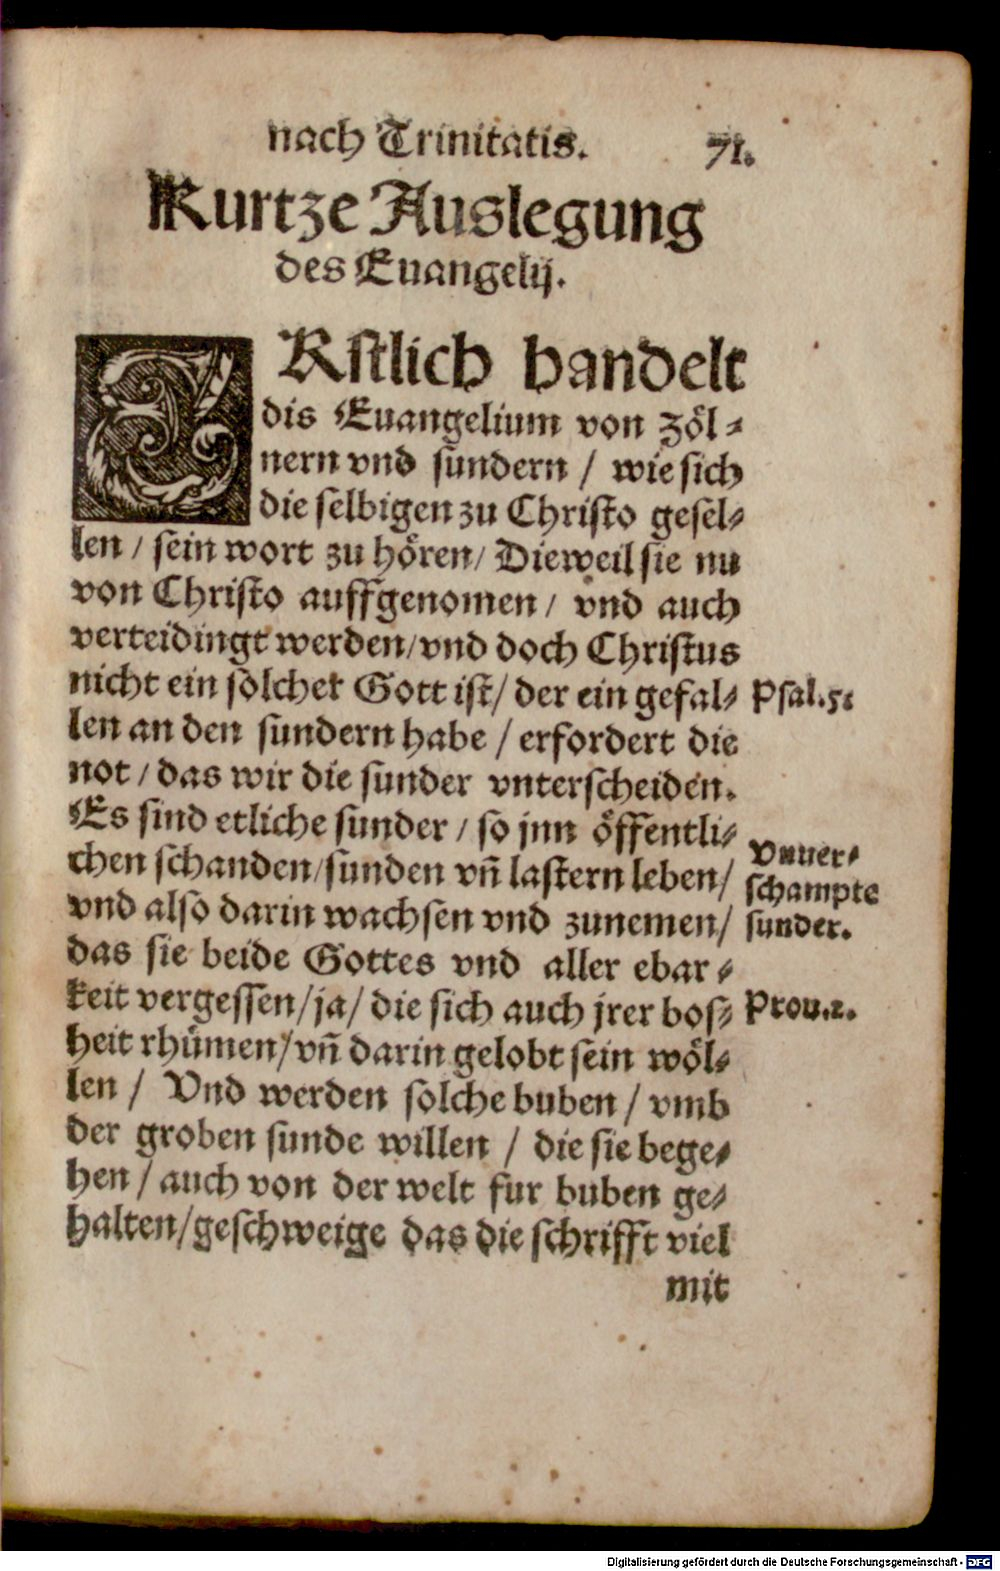 nach Trinitatis. 71.
Kurtze Auslegung
des Euangelij.
ERstlich handelt
dis Euangelium von Zöl⸗
nern vnd sundern / wie sich
die selbigen zu Christo gesel⸗
len / sein wort zu hören / Dieweil sie nu
von Christo auffgenomen / vnd auch
verteidingt werden / vnd doch Christus
nicht ein solcher Gott ist / der ein gefal⸗
len an den sundern habe / erfordert die
not / das wir die sunder vnterscheiden.
Es sind etliche sunder / so jnn öffentli⸗
chen schanden / sunden vn̄ lastern leben /
vnd also darin wachsen vnd zunemen /
das sie beide Gottes vnd aller ebar⸗
keit vergessen / ja / die sich auch jrer bos⸗
heit rhümen / vn̄ darin gelobt sein wöl⸗
len / Vnd werden solche buben / vmb
der groben sunde willen / die sie bege⸗
hen / auch von der welt fur buben ge⸗
halten / geschweige das die schrifft viel
mit
Psal.5:
Vnuer⸗
schampte
sunder.
Prou.2.
Digitalisierung gefördert durch die Deutsche Forschungsgemeinschaft - DFG